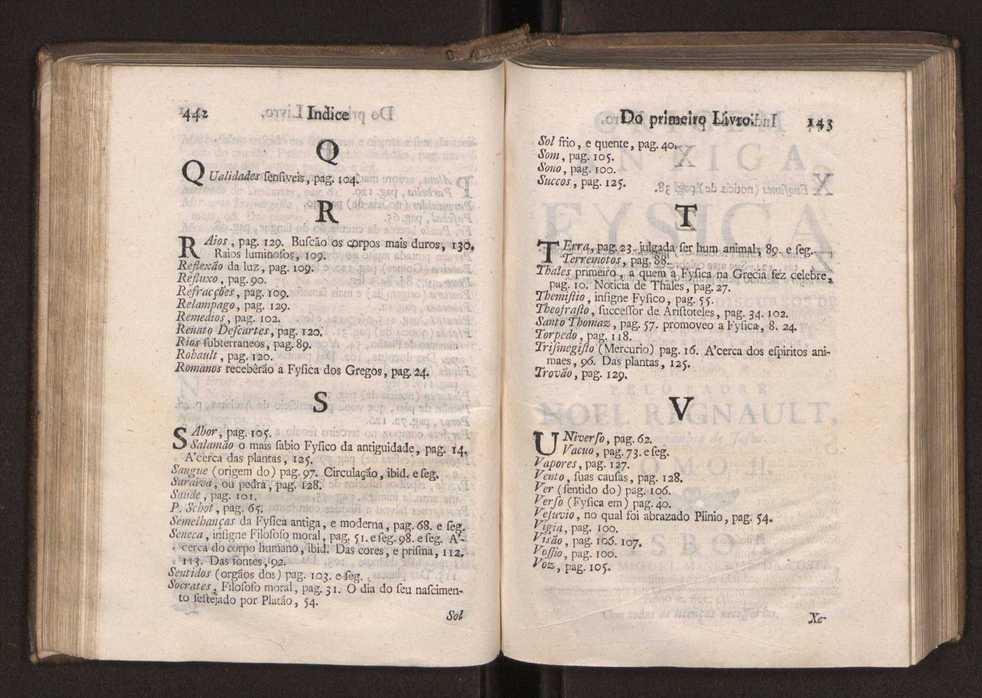 442 Indice
Q
QUalidades sensiveis, pag. 104.
R
RAios, pag. 129. Buscão os corpos mais duros, 130.
Raios luminosos, 109.
Reflexão da luz, pag. 109.
Refluxo, pag. 90.
Refracções, pag. 109.
Relampago, pag. 129.
Remedios, pag. 102.
Renato Descartes, pag. 120.
Rios subterraneos, pag. 89.
Rohault, pag. 120.
Romanos recebêrão a Fysica dos Gregos, pag. 24.
S
SAbor, pag. 105.
Salamão o mais sabio Fysico da antiguidade, pag. 14.
A'cerca das plantas, 125.
Sangue (origem do) pag. 97. Circulação, ibid. e seg.
Saraiva, ou pedra, pag. 128.
Saude, pag. 101.
P. Schot, pag. 65.
Semelhanças da Fysica antiga, e moderna, pag. 68. e seg.
Seneca, insigne Filosofo moral, pag. 51. e seg. 98. e seg. A'-
cerca do corpo humano, ibid. Das cores, e prisma, 112.
113. Das fontes, 92.
Sentidos (orgãos dos) pag. 103. e seg.
Socrates, Filosofo moral, pag. 31. O dia do seu nascimen-
to festejado por Platão, 54.
Sol
Do primeiro Livro. 143
Sol frio, e quente, pag. 40.
Som, pag. 105.
Sono, pag. 100.
Succos, pag. 125.
T
TErra, pag. 23. julgada ser hum animal, 89. e seg.
Terremotos, pag. 88.
Thales primeiro, a quem a Fysica na Grecia fez celebre,
pag. 10. Noticia de Thales, pag. 27.
Themistio, insigne Fysico, pag. 55.
Theofrasto, successor de Aristoteles, pag. 34. 102.
Santo Thomaz, pag. 57. promoveo a Fysica, 8. 24.
Torpedo, pag. 118.
Trismegisto (Mercurio) pag. 16. A'cerca dos espiritos ani-
maes, 96. Das plantas, 125.
Trovão, pag. 129.
V
UNiverso, pag. 62.
Vacuo, pag. 73. e seg.
Vapores, pag. 127.
Vento, suas causas, pag. 128.
Ver (sentido do) pag. 106.
Verso (Fysica em) pag. 40.
Vesuvio, no qual foi abrazado Plinio, pag. 54.
Vigia, pag. 100.
Visão, pag. 106. 107.
Vossio, pag. 100.
Voz, pag. 105.
Xe-